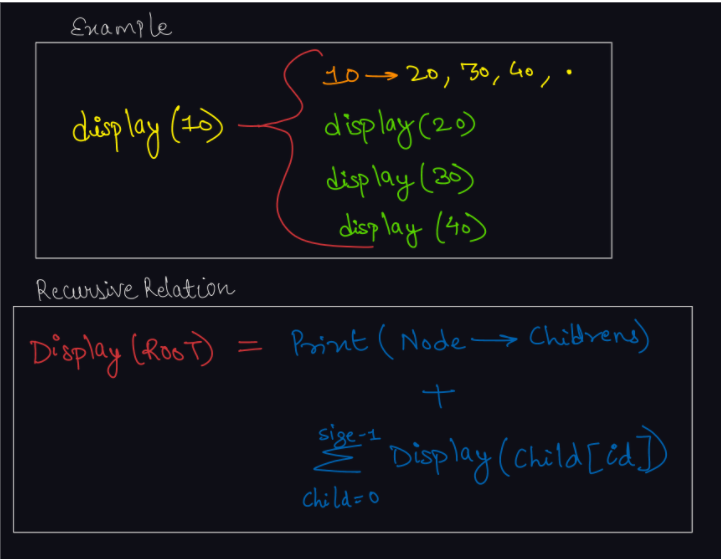 Example
display(10)
10 → 20, 30, 40, .
display(20)
display(30)
display (40)
Recursive Relation
Display (ROOT) = Print ( Node → Childrens)
+
size-1
Σ Display (Child[id])
Child=0